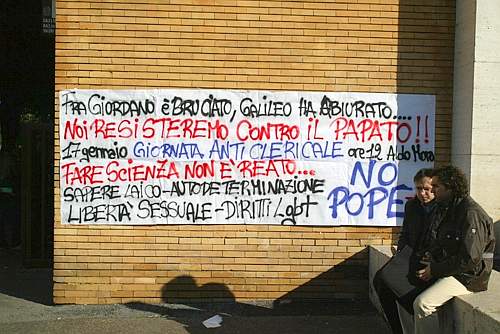 FRA GIORDANO è BRUCIATO, GALILEO HA ABIURATO....
NOI RESISTEREMO CONTRO IL PAPATO!!
17 gennaio GIORNATA ANTICLERICALE ore 12 Aldo Moro
FARE SCIENZA NON E' REATO...
SAPERE LAICO - AUTODETERMINAZIONE
LIBERTÀ SESSUALE - DIRITTI Lgbt
NO
POPE